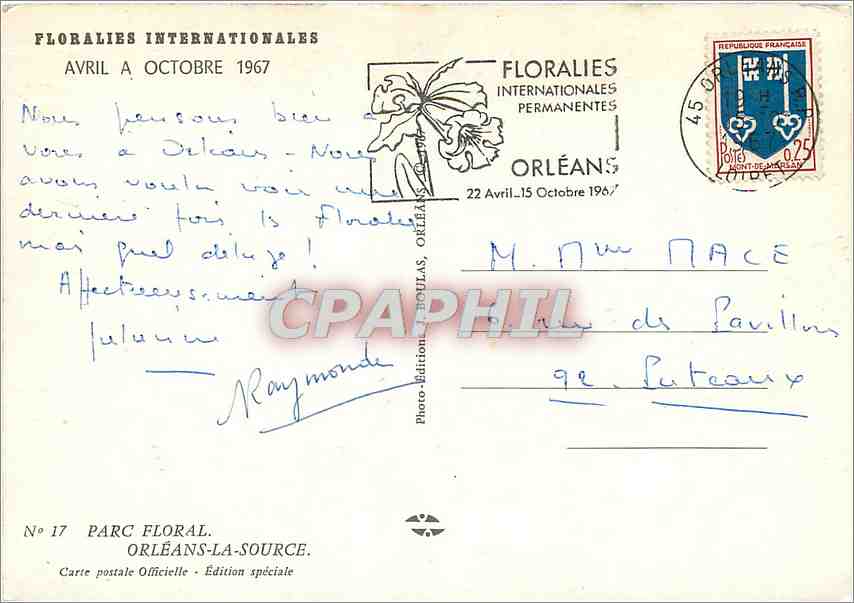 FLORALIES INTERNATIONALES
AVRIL A OCTOBRE 1967
Nous pensons bien à
vous à Orléans - Nous
avons voulu voir une
dernière fois ls Floralies
mais quel déluge !
Affectueusement
Raymonde
FLORALIES
INTERNATIONALES
PERMANENTES
ORLÉANS
22 Avril_15 Octobre 1967
45 ORLEANS R.P.
LOIRET
REPUBLIQUE FRANÇAISE
POSTES
0,25
MONT-DE-MARSAN
M. Mme MACE
rue des Pavillons
92 Puteaux
Photo-Édition J. BOULAS, ORLÉANS © 1967
CPAPHIL
No 17 PARC FLORAL.
ORLÉANS-LA-SOURCE.
Carte postale Officielle - Édition spéciale